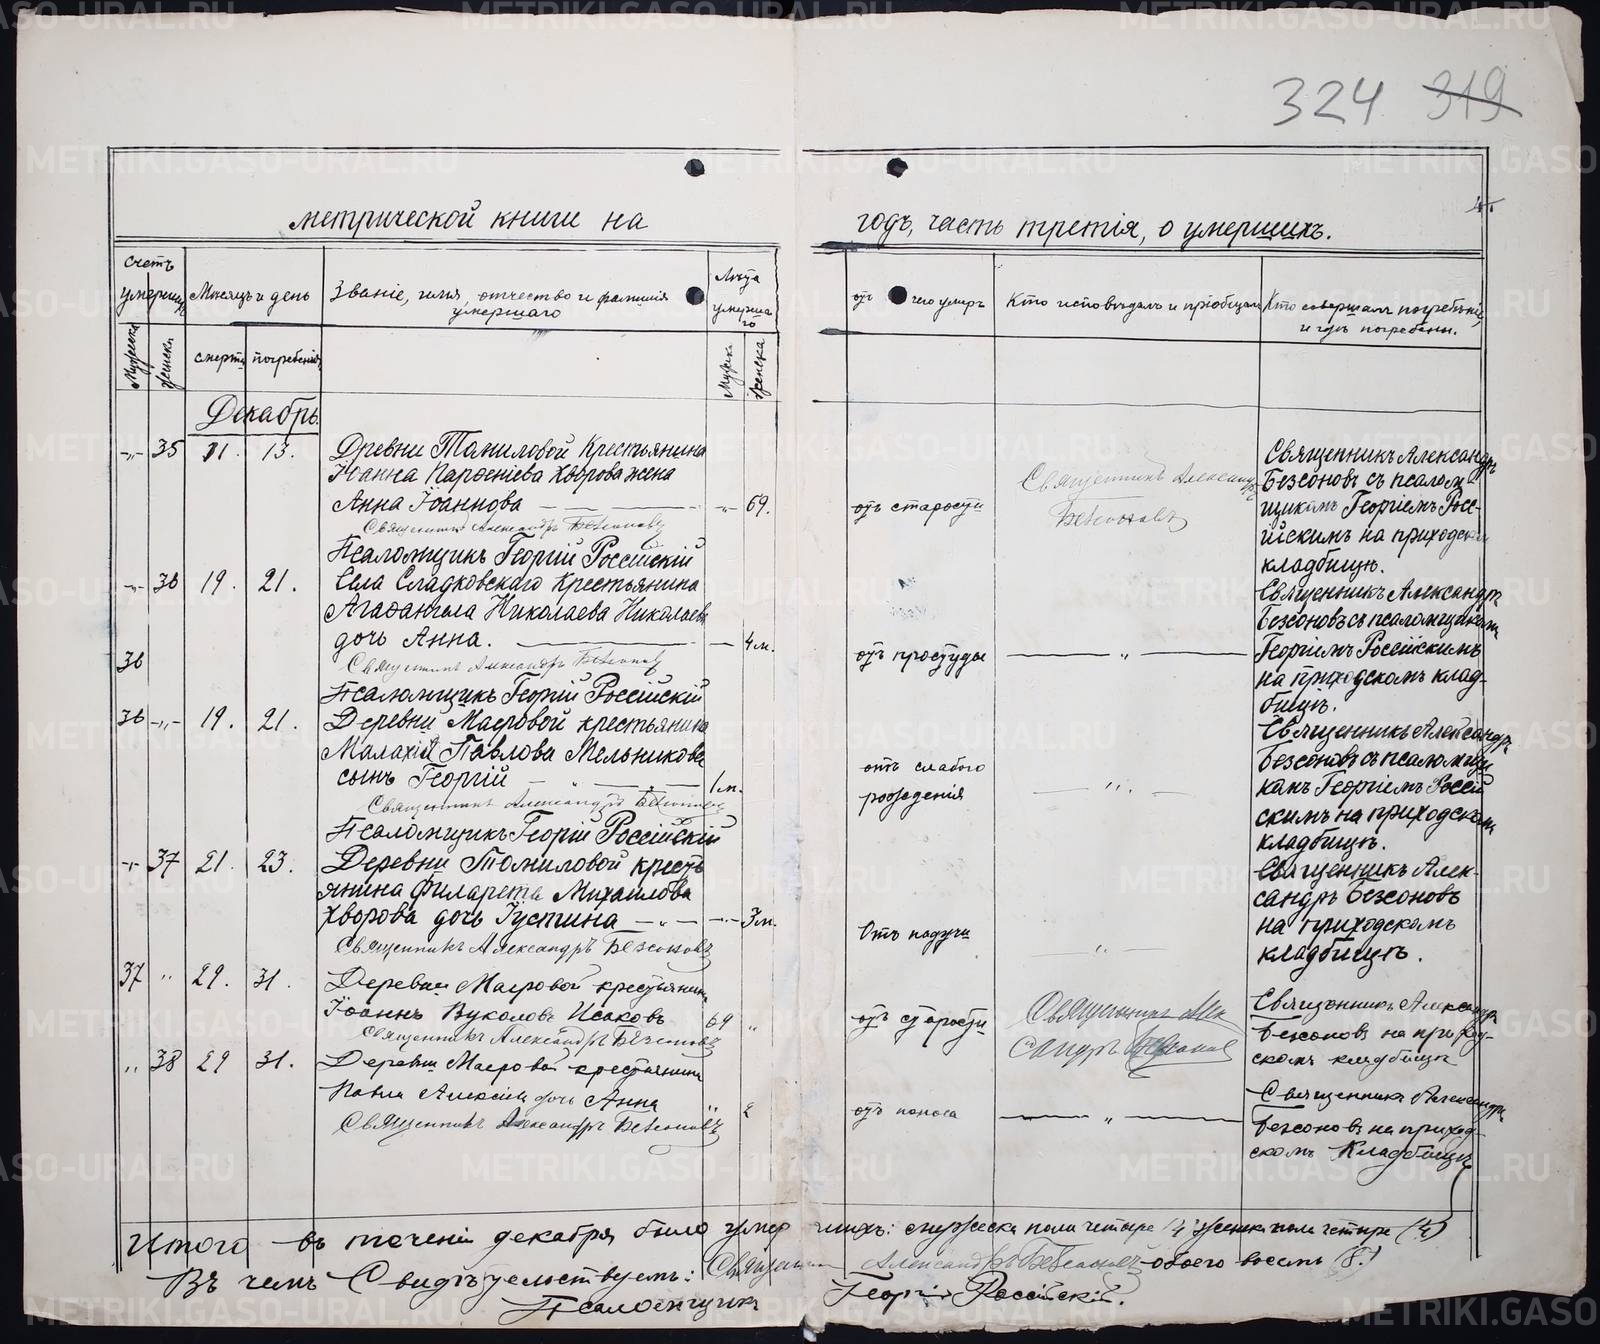 324 319
метрической книги на годъ, часть третія, о умершихъ.
Счетъ умершихъ
Мужска
Женска
Мѣсяцъ и день
смерти
погребенія
Званіе, имя, отчество и фамилія умершаго
Лѣта умершаго
Мужска
Женска
отъ чего умеръ
Кто исповѣдалъ и пріобщалъ
Кто совершалъ погребеніе, и гдѣ погребены.
Декабрь
-„- 35 11. 13. Древни Томиловой Крестьянина
Іоанна Парѳеніева Хворова жена
Анна Іоаннова -„- 69.
отъ старости
Священникъ Александръ
Безсоновъ
Священникъ Александръ
Безсоновъ съ псалом
щикомъ Георгіемъ Росс-
ійскимъ на приходском
кладбищѣ.
Священникъ Александръ Безсоновъ
Псаломщикъ Георгій Россійскій
-„- 36 19. 21. Села Сладковскаго Крестьянина
Агаѳангела Николаева Николаев
дочь Анна. 4 м.
отъ простуды
„
Священникъ Александръ
Безсоновъ съ псаломщикомъ
Георгіемъ Россійскимъ
на приходскомъ клад-
бищѣ.
36
Священникъ Александръ Безсоновъ
Псаломщикъ Георгій Россійскій
36 -„- 19. 21. Деревни Маеровой крестьянина
Малахія Павлова Мельникова
сынъ Георгій 1 м.
отъ слабого
рожденія
„
Священникъ Александръ
Безсоновъ съ псаломщи
комъ Георгіемъ Россій
скимъ на приходском
кладбищѣ.
Священникъ Александръ Безсоновъ
Псаломщикъ Георгій Россійскій
-„- 37 21. 23. Деревни Томиловой кресть
янина Филарета Михаилова
Хворова дочь Іустина -„- 3 м.
Отъ падучи
„
Священникъ Алек-
сандръ Безсоновъ
на приходскомъ
кладбищѣ.
Священникъ Александръ Безсоновъ
37 „ 29. 31. Деревни Маеровой крестьянинъ
Іоаннъ Вуколовъ Исаковъ 69 „
отъ старости
Священникъ Алек
сандръ Безсоновъ
Священникъ Александръ
Безсоновъ на приход-
скомъ кладбищѣ
Священникъ Александръ Безсоновъ
„ 38 29 31. Деревни Маеровой крестьянина
Павла Алексѣева дочь Анна „ 2
отъ поноса
„
Священникъ Александръ
Безсоновъ на приход-
скомъ Кладбищѣ
Священникъ Александръ Безсоновъ
Итого въ теченіи декабря было умерших: мужеска пола четыре /4/ женска пола четыре (4)
обоего восемь (8.)
Въ чемъ Свидѣтельствуемъ: Священникъ Александръ Безсоновъ
Псаломщикъ Георгій Россійскій.
METRIKI.GASO-URAL.RU